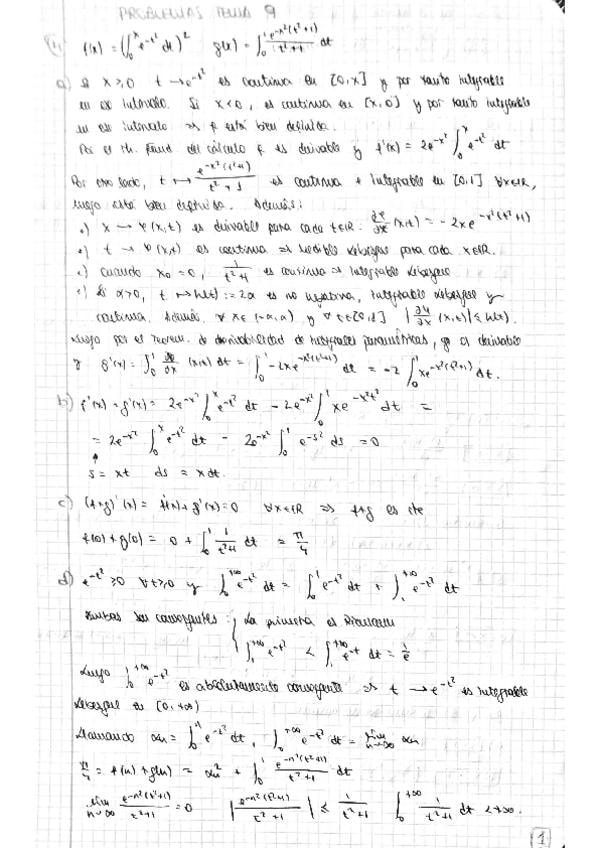 PROBLEMAS TEMA 9
f(x) = (∫_0^x e^{-t²} dt)²   g(x) = ∫_0^1 e^{-x²(t²+1)}/(t²+1) dt
a) Si x ≥ 0   t → e^{-t²} es continua en [0,x] y por tanto integrable
en ese intervalo. Si x < 0, es continua en [x,0] y por tanto integrable
en ese intervalo ⇒ f está bien definida.
Por el th. fund. del cálculo f es derivable y f'(x) = 2e^{-x²} ∫_0^x e^{-t²} dt
Por otro lado, t ↦ e^{-x²(t²+1)}/(t²+1) es continua + integrable en [0,1] ∀x∈ℝ,
luego está bien definida. Además:
x → φ(x,t) es derivable para cada t∈ℝ: ∂φ/∂x (x,t) = -2xe^{-x²(t²+1)}
t → φ(x,t) es continua ⇒ medible Lebesgue para cada x∈ℝ.
cuando x₀ = 0, 1/(t²+1) es continua ⇒ integrable Lebesgue
Si α>0, t ↦ h(t) := 2α es no negativa, integrable Lebesgue y
continua. Además ∀x∈(-α,α) y ∀t∈[0,1] |∂φ/∂x (x,t)| ≤ h(t).
Luego por el teorema de derivabilidad de integrales paramétricas, g es derivable
y g'(x) = ∫_0^1 ∂φ/∂x (x,t) dt = ∫_0^1 -2xe^{-x²(t²+1)} dt = -2 ∫_0^1 xe^{-x²(t²+1)} dt.
b) f'(x) + g'(x) = 2e^{-x²} ∫_0^x e^{-t²} dt - 2e^{-x²} ∫_0^1 xe^{-x²t²} dt =
= 2e^{-x²} ∫_0^x e^{-t²} dt - 2e^{-x²} ∫_0^1 e^{-s²} ds = 0
s = xt   ds = x dt.
c) (f+g)'(x) = f'(x) + g'(x) = 0   ∀x∈ℝ ⇒ f+g es cte
f(0) + g(0) = 0 + ∫_0^1 1/(t²+1) dt = π/4
d) e^{-t²} ≥ 0 ∀t≥0 y ∫_0^{+∞} e^{-t²} dt = ∫_0^1 e^{-t²} dt + ∫_1^{+∞} e^{-t²} dt
Ambas son convergentes: { La primera es Riemann
∫_1^{+∞} e^{-t²} < ∫_1^{+∞} e^{-t} dt = 1/e
Luego ∫_0^{+∞} e^{-t²} es absolutamente convergente ⇒ t → e^{-t²} es integrable
Lebesgue en [0,+∞)
Llamando αn = ∫_0^n e^{-t²} dt, ∫_0^{+∞} e^{-t²} dt = lim_{n→∞} αn
π/4 = f(n) + g(n) = αn² + ∫_0^1 e^{-n²(t²+1)}/(t²+1) dt
lim_{n→∞} e^{-n²(t²+1)}/(t²+1) = 0   |e^{-n²(t²+1)}/(t²+1)| ≤ 1/(t²+1)   ∫_0^{+∞} 1/(t²+1) dt < +∞.
1